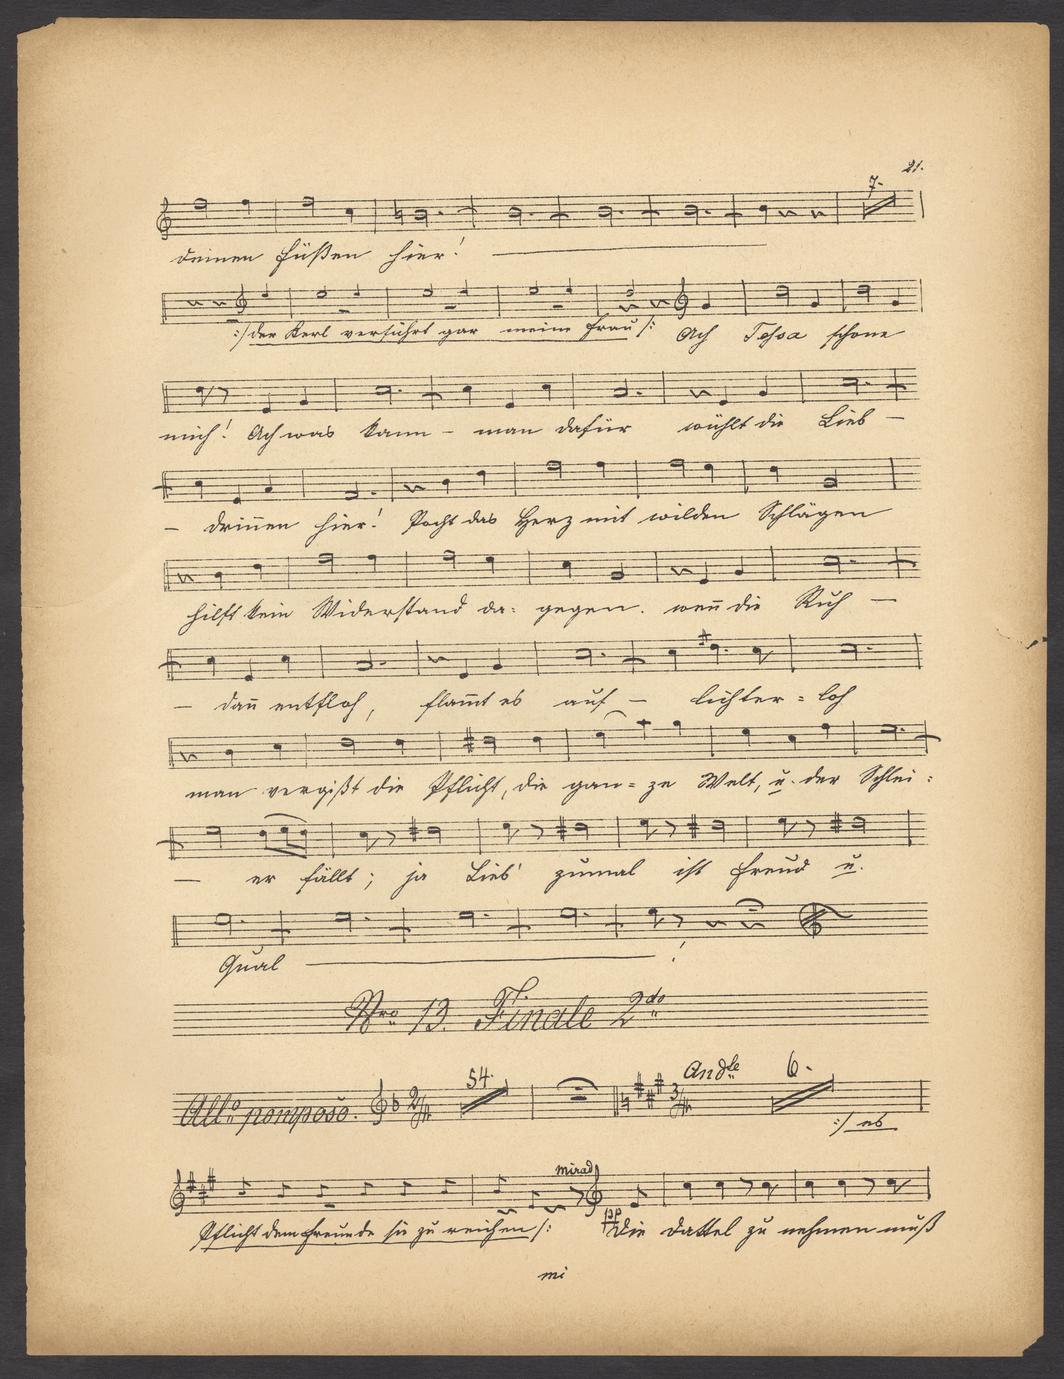 21.
7.
deinen Füßen hier!
:/ der Kerl verführt gar meine Frau /: Ach Tessa schone
mich! Ach was kann – man dafür wühlt die Lieb –
– drin̄en hier! Pocht das Herz mit wilden Schlägen
hilft kein Widerstand da: gegen. wen̄ die Ruh –
– dan̄ entfloh, flam̄t es auf – lichter = loh
man vergißt die Pflicht, die gan = ze Welt, u. der Schlei :
– er fällt; ja Lieb' zumal ist Freud u.
Qual
Nro 13. Finale 2do
54. Andte 6.
Allo pomposo. 2/4 3/4 :/ es
mirad
Pflicht dem Freunde sie zu reichen /: pp Die Dattel zu nehmen muß
mi